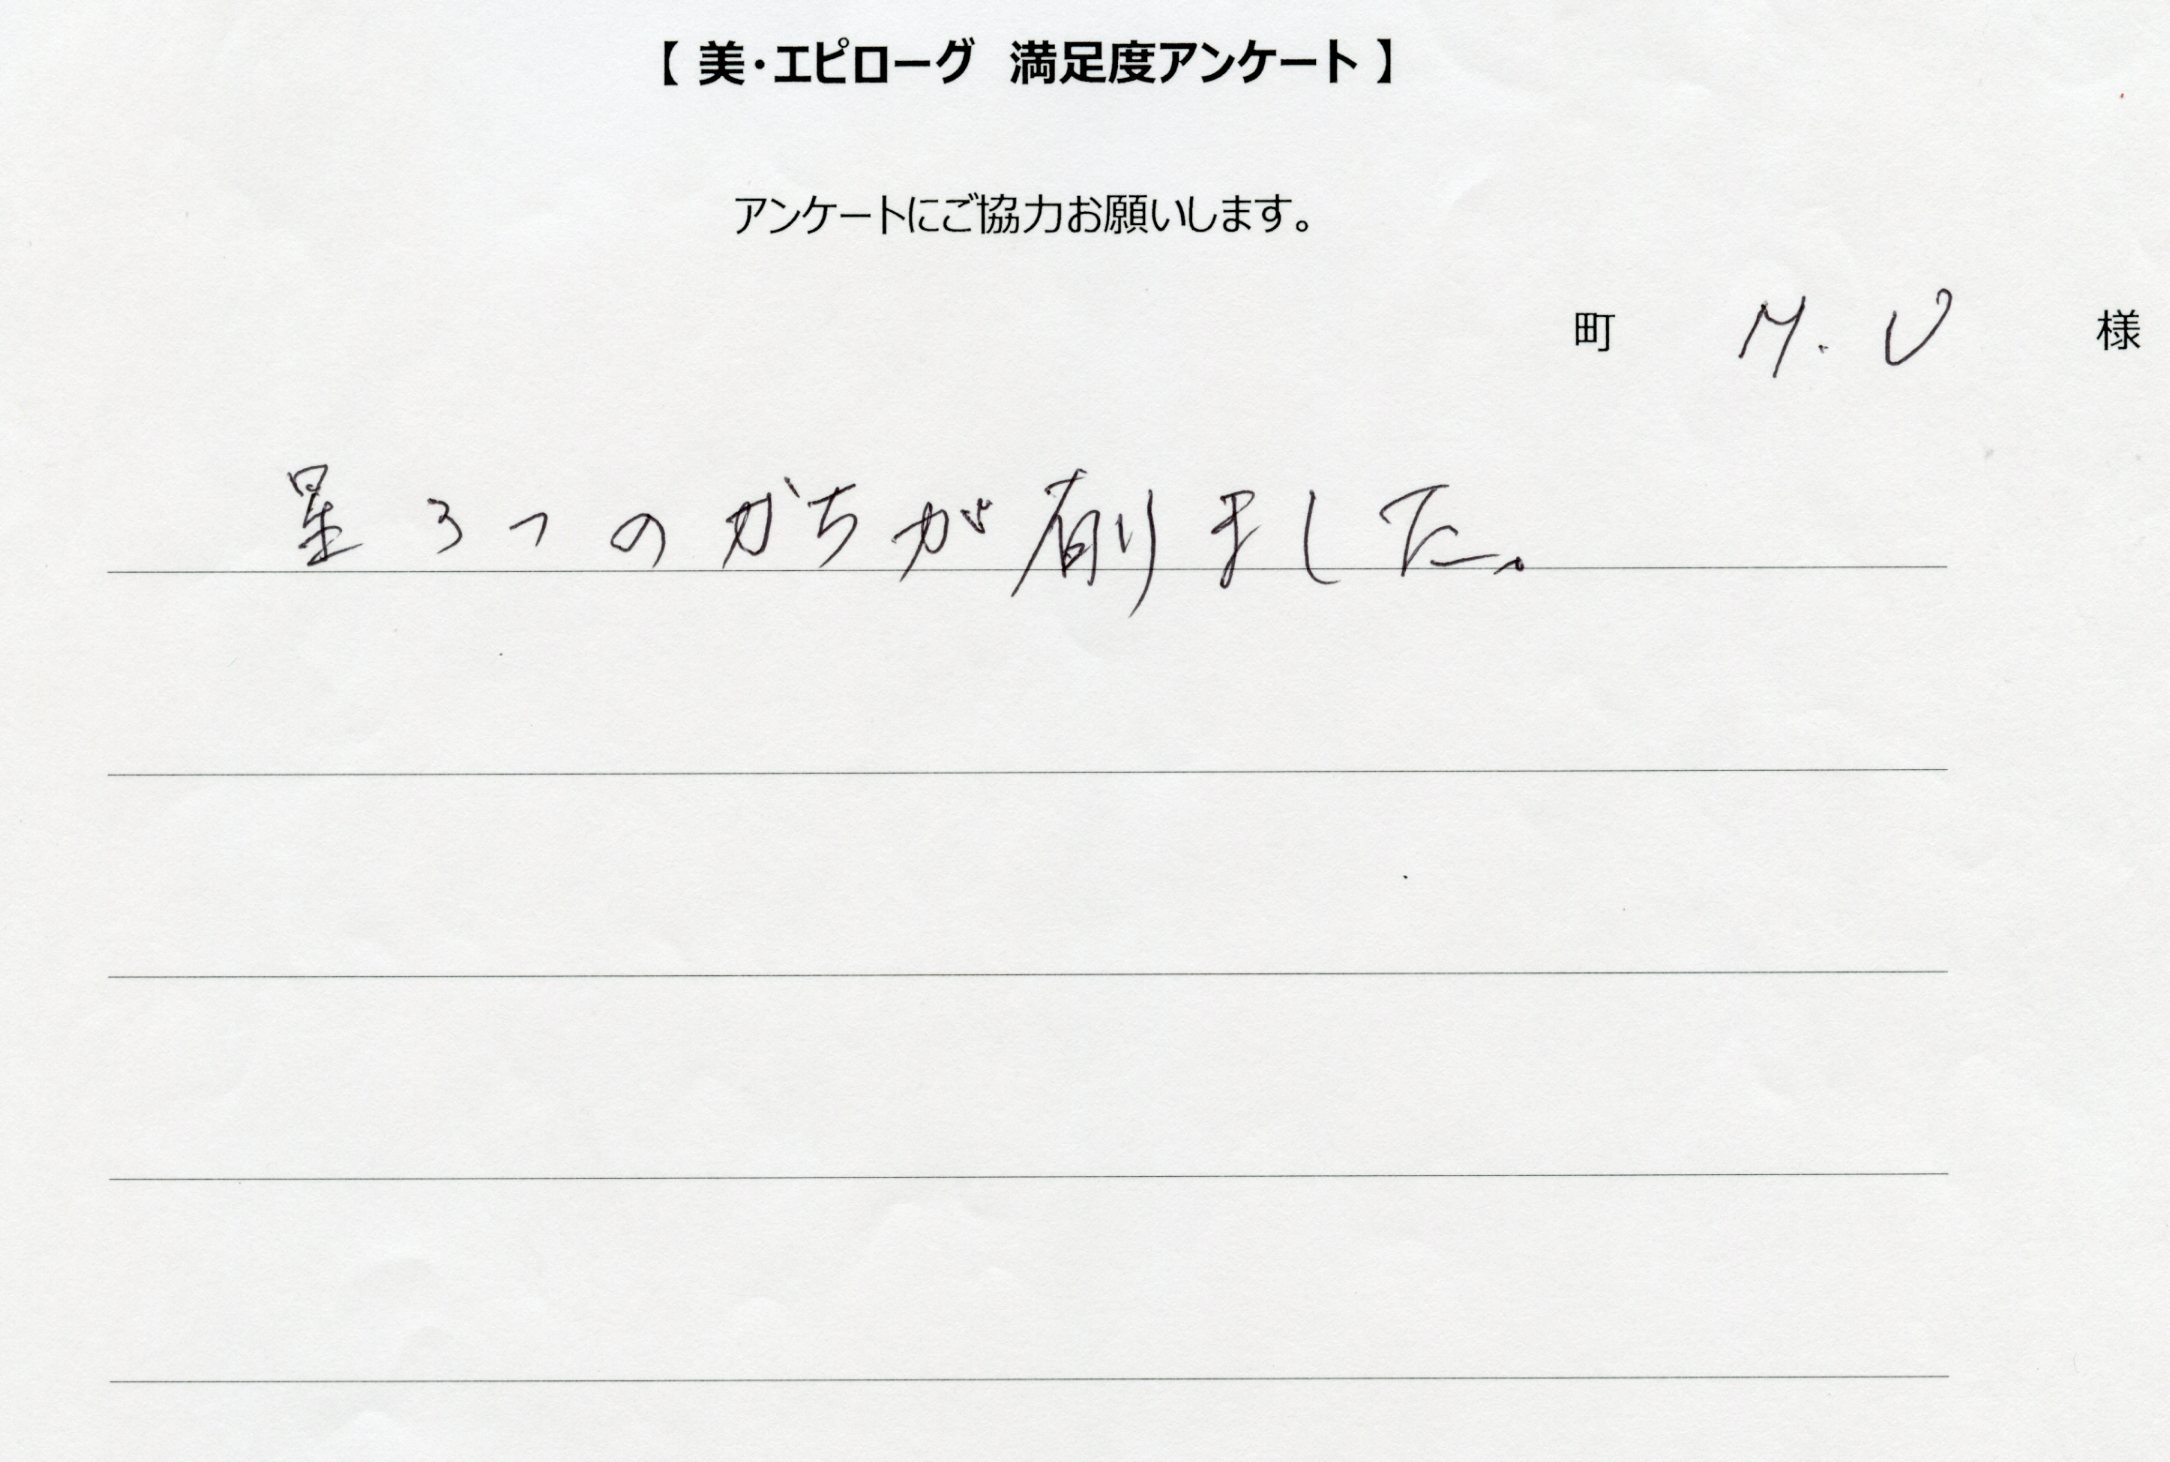 【 美・エピローグ 満足度アンケート 】
アンケートにご協力お願いします。
町 M.U 様
星3つのかちが有りました。